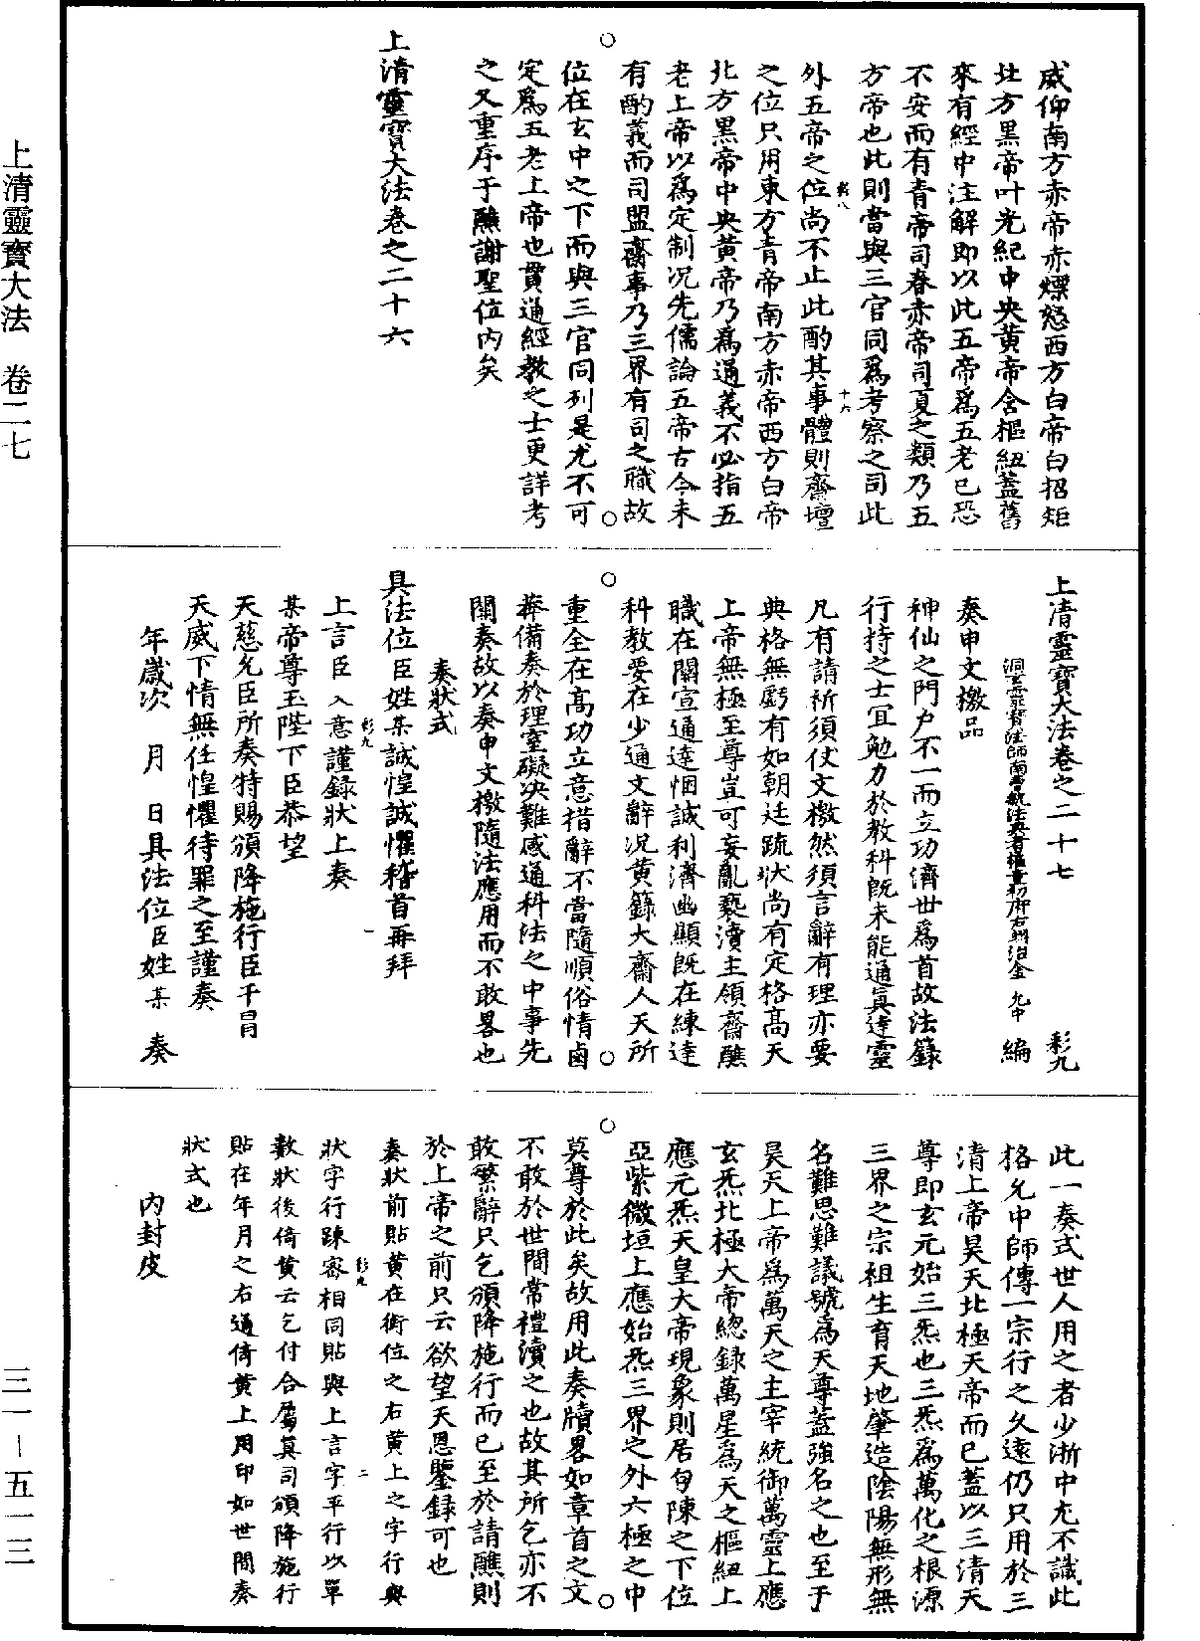 上清靈寶大法　卷二七
三一－五一三
威仰南方赤帝赤熛怒西方白帝白招矩
北方黑帝叶光紀中央黃帝含樞紐蓋舊
來有經中注解即以此五帝為五老已恐
不安而有青帝司春赤帝司夏之類乃五
方帝也此則當與三官同為考察之司此
彩八　十六
外五帝之位尚不止此酌其事體則齋壇
之位只用東方青帝南方赤帝西方白帝
北方黑帝中央黃帝乃為通義不必指五
老上帝以為定制况先儒論五帝古今未
有酌義而司盟齋事乃三界有司之職故
位在玄中之下而與三官同列是尤不可
定為五老上帝也貫通經教之士更詳考
之又重序于醮謝聖位內矣
上清靈寶大法卷之二十六
上清靈寶大法卷之二十七　彩九
洞玄靈寶法師南曹執法典者權童初府右翊治金　允中　編
奏申文檄品
神仙之門户不一而立功濟世為首故法籙
行持之士宜勉力於教科旣未能通真達靈
凡有請祈須仗文檄然須言辭有理亦要
典格無虧有如朝廷疏狀尚有定格高天
上帝無極至尊豈可妄亂褻瀆主領齋醮
職在關宣通達悃誠利濟幽顯旣在練達
科教要在少通文辭况黃籙大齋人天所
重全在高功立意措辭不當隨順俗情鹵
莽備奏於理窒礙决難感通科法之中事先
關奏故以奏申文檄隨法應用而不敢畧也
奏狀式
具法位臣姓某誠惶誠懼稽首再拜
彩九　一
上言臣 入意謹錄狀上奏
某帝尊玉陛下臣恭望
天慈允臣所奏特賜頒降施行臣干冒
天威下情無任惶懼待罪之至謹奏
年歲次　月　日具法位臣姓某　奏
此一奏式世人用之者少浙中尤不識此
格允中師傳一宗行之久遠仍只用於三
清上帝昊天北極天帝而已蓋以三清天
尊即玄元始三炁也三炁為萬化之根源
三界之宗祖生育天地肇造陰陽無形無
名難思難議號為天尊蓋強名之也至于
昊天上帝為萬天之主宰統御萬靈上應
玄炁北極大帝總錄萬星為天之樞紐上
應元炁天皇大帝現象則居勾陳之下位
亞紫微垣上應始炁三界之外六極之中
莫尊於此矣故用此奏牘畧如章首之文
不敢於世間常禮瀆之也故其所乞亦不
敢繁辭只乞頒降施行而已至於請醮則
於上帝之前只云欲望天恩鑒錄可也
奏狀前貼黃在銜位之右黃上之字行與
彩九　二
狀字行踈密相同貼與上言字平行以單
數狀後倚黃云乞付合屬真司頒降施行
貼在年月之右通倚黃上用印如世間奏
狀式也
內封皮